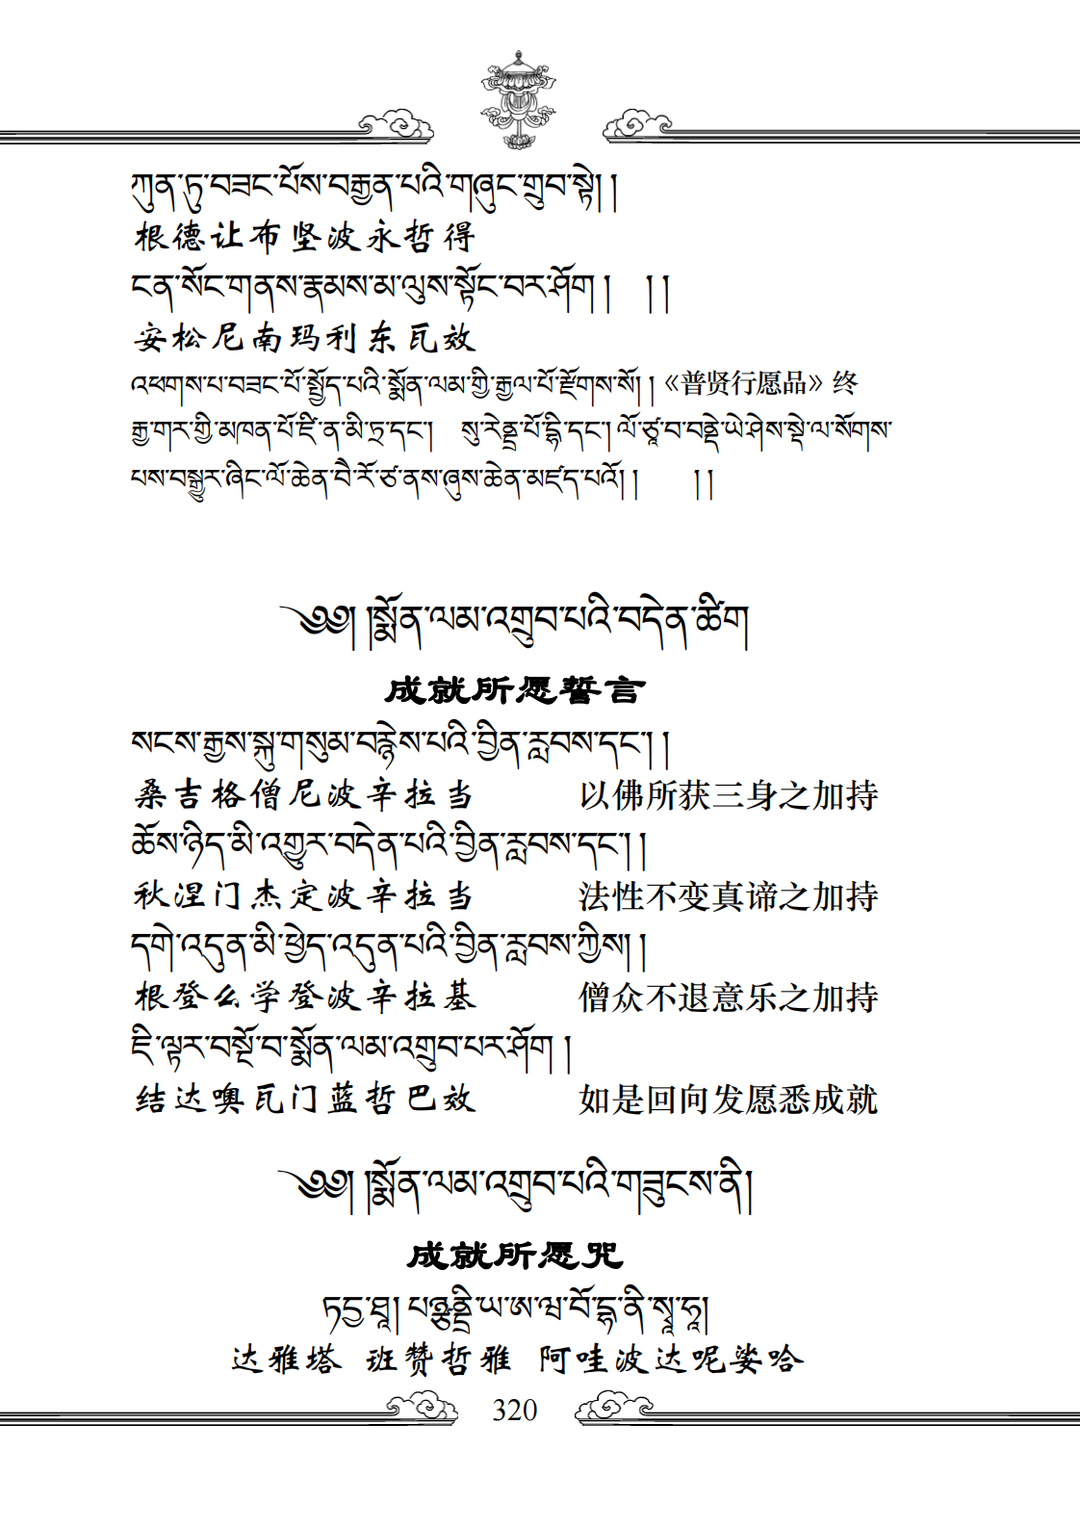 ཀུན་ཏུ་བཟང་པོས་བརྒྱན་པའི་གཞུང་གྲུབ་སྟེ། །
根德让布坚波永哲得
ངན་སོང་གནས་རྣམས་མ་ལུས་སྟོང་བར་ཤོག །   །།
安松尼南玛利东瓦效
འཕགས་པ་བཟང་པོ་སྤྱོད་པའི་སྨོན་ལམ་གྱི་རྒྱལ་པོ་རྫོགས་སོ། །《普贤行愿品》终
རྒྱ་གར་གྱི་མཁན་པོ་ཛི་ན་མི་ཏྲ་དང་།   སུ་རེནྡྲ་པོ་དྷི་དང་། ལོ་ཙཱ་བ་བནྡེ་ཡེ་ཤེས་སྡེ་ལ་སོགས་
པས་བསྒྱུར་ཞིང་ལོ་ཆེན་བཻ་རོ་ཙ་ནས་ཞུས་ཆེན་མཛད་པའོ། །   །།
༄༅། །སྨོན་ལམ་འགྲུབ་པའི་བདེན་ཚིག
成就所愿誓言
སངས་རྒྱས་སྐུ་གསུམ་བརྙེས་པའི་བྱིན་རླབས་དང་། །
桑吉格僧尼波辛拉当 以佛所获三身之加持
ཆོས་ཉིད་མི་འགྱུར་བདེན་པའི་བྱིན་རླབས་དང་། །
秋涅门杰定波辛拉当 法性不变真谛之加持
དགེ་འདུན་མི་ཕྱེད་འདུན་པའི་བྱིན་རླབས་ཀྱིས། །
根登么学登波辛拉基 僧众不退意乐之加持
ཇི་ལྟར་བསྔོ་བ་སྨོན་ལམ་འགྲུབ་པར་ཤོག །
结达噢瓦门蓝哲巴效 如是回向发愿悉成就
༄༅། །སྨོན་ལམ་འགྲུབ་པའི་གཟུངས་ནི།
成就所愿咒
ཏདྱ་ཐཱ། པཉྩནྡྲི་ཡ་ཨ་ཝ་བོ་དྷ་ནི་སྭཱ་ཧཱ།
达雅塔 班赞哲雅 阿哇波达呢娑哈
320